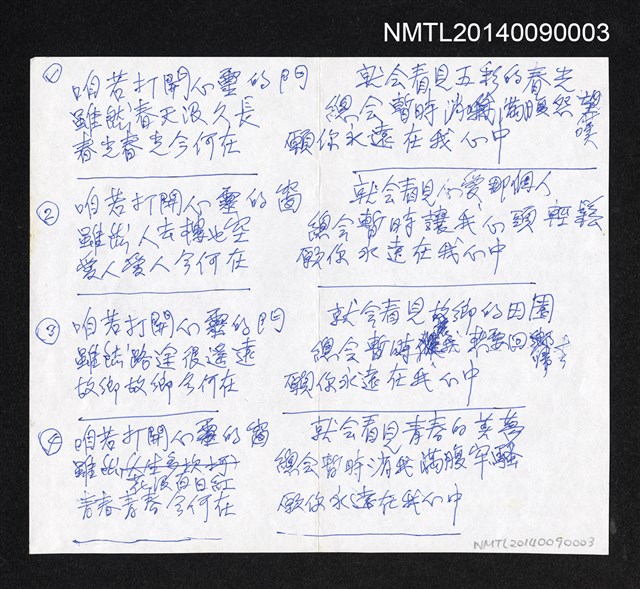 NMTL20140090003
① 咱若打開心靈的門 就会看見五彩的春光
雖然春天沒久長 總会暫時消 滿腹怨嘆
春光春光今何在 願你永遠在我心中
② 咱若打開心靈的窗 就会看見心愛那個人
雖然人去樓也空 總会暫時讓我心頭輕鬆
愛人愛人今何在 願你永遠在我心中
③ 咱若打開心靈的門 就会看見故鄉的田園
雖然路途很遙遠 總会暫時 我 回鄉
故鄉故鄉今何在 願你永遠在我心中
④ 咱若打開心靈的窗 就会看見青春的美夢
雖然 總会暫時消我滿腹牢騷
花沒百日紅
青春青春今何在 願你永遠在我心中
NMTL20140090003